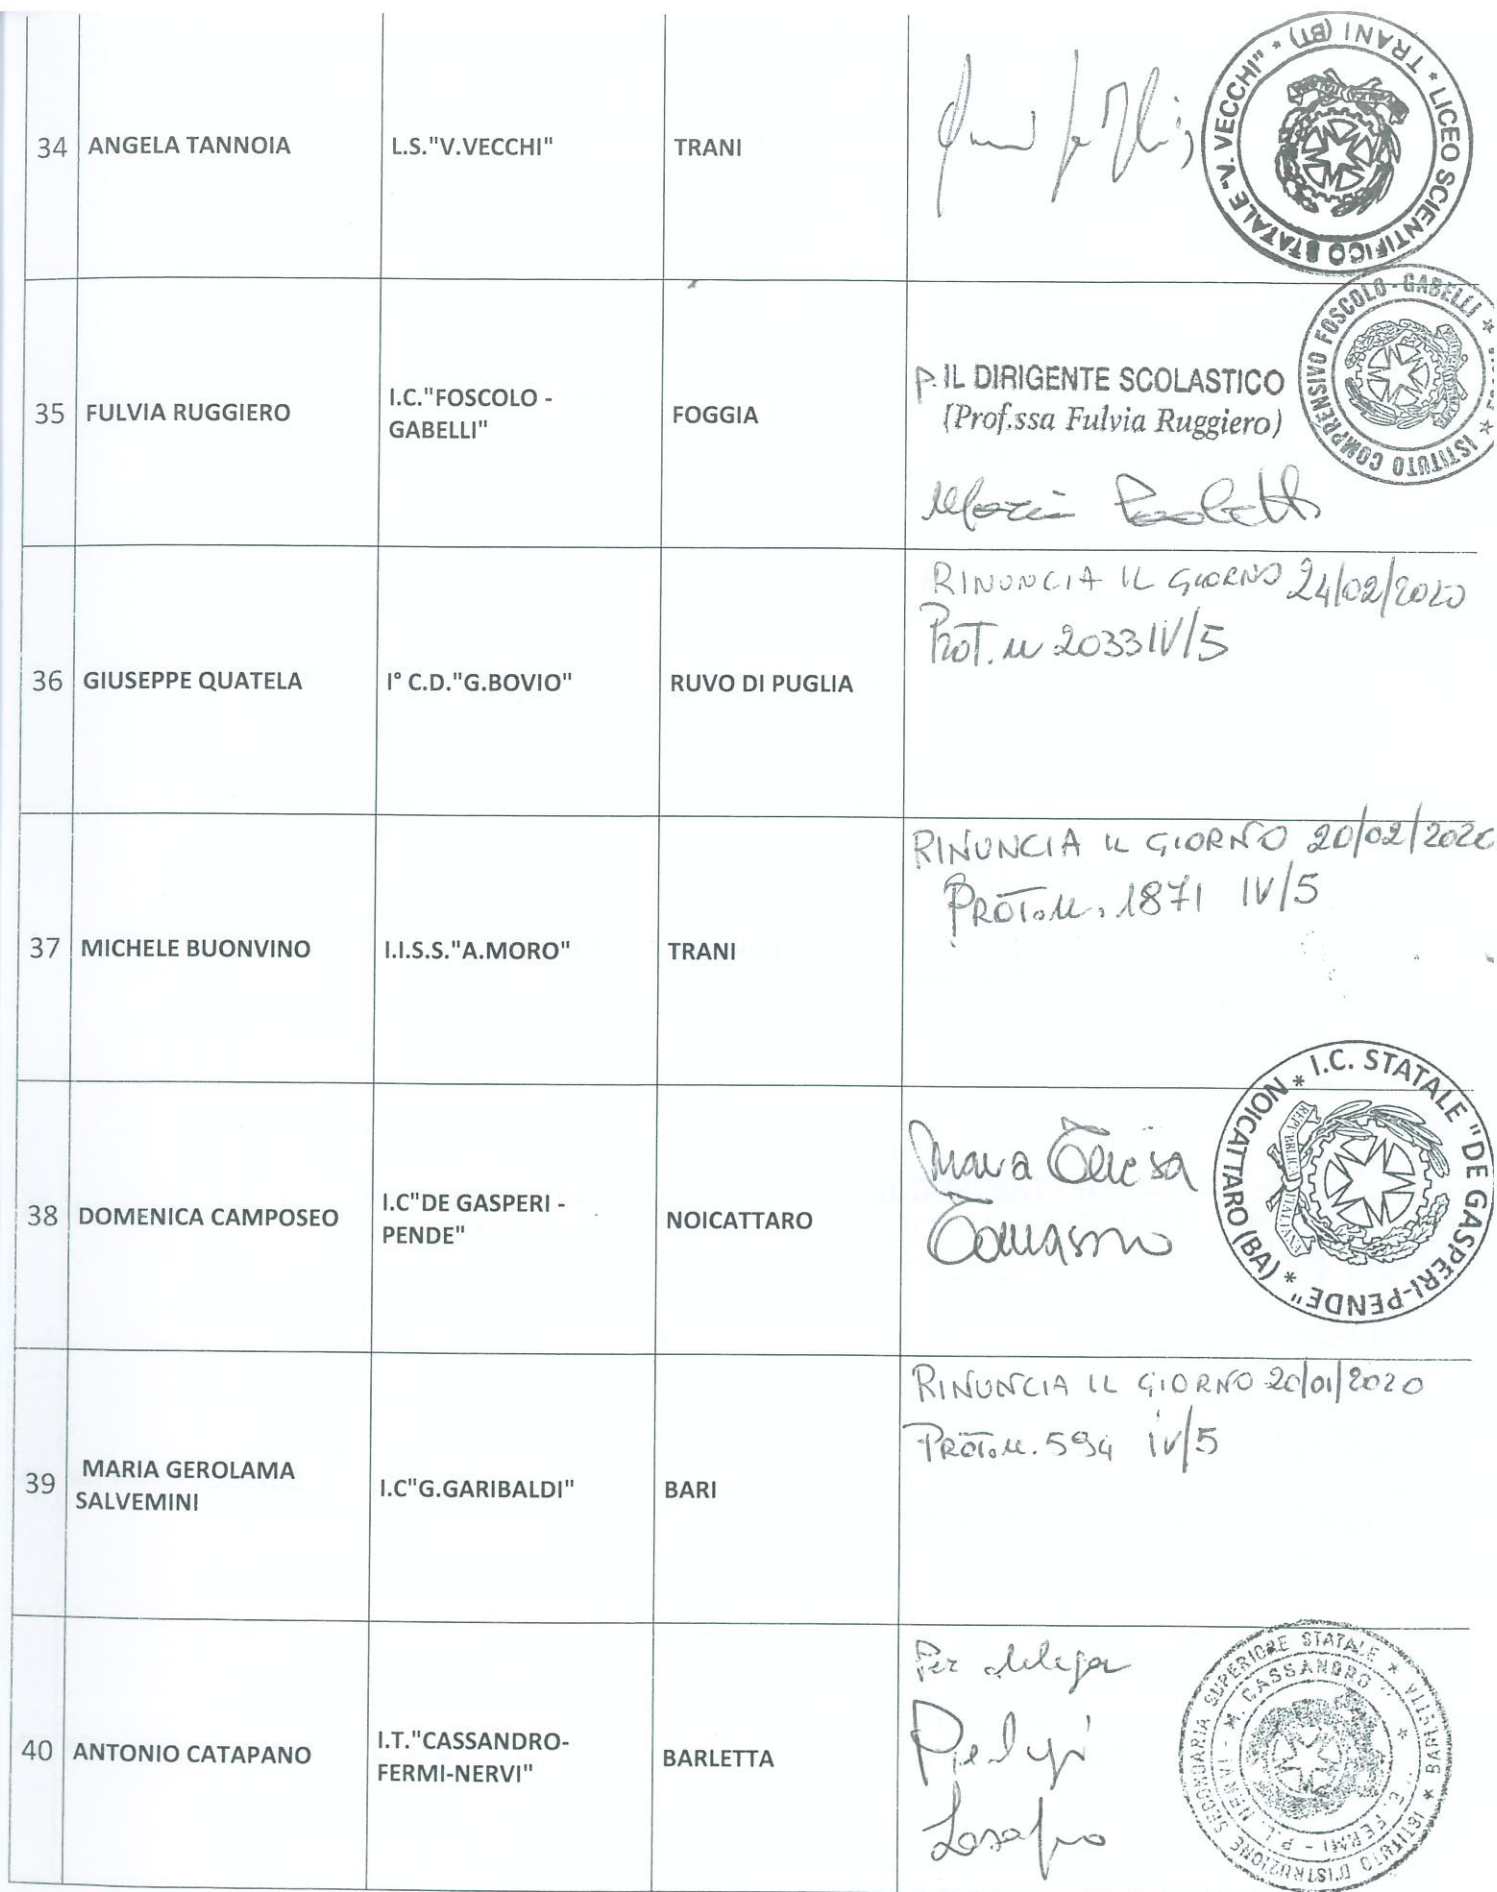 34 ANGELA TANNOIA L.S."V.VECCHI" TRANI
* LICEO SCIENTIFICO STATALE "V. VECCHI" * TRANI (BT)
35 FULVIA RUGGIERO I.C."FOSCOLO - GABELLI" FOGGIA
P. IL DIRIGENTE SCOLASTICO
(Prof.ssa Fulvia Ruggiero)
* ISTITUTO COMPRENSIVO FOSCOLO - GABELLI *
36 GIUSEPPE QUATELA I° C.D."G.BOVIO" RUVO DI PUGLIA
RINUNCIA IL GIORNO 24/02/2020
PROT. N 2033 IV/5
37 MICHELE BUONVINO I.I.S.S."A.MORO" TRANI
RINUNCIA IL GIORNO 20/02/2020
PROT. N. 1871 IV/5
38 DOMENICA CAMPOSEO I.C"DE GASPERI - PENDE" NOICATTARO
Maria Teresa
Tomasino
* I.C. STATALE "DE GASPERI-PENDE" * NOICATTARO (BA)
REPUBBLICA ITALIANA
39 MARIA GEROLAMA SALVEMINI I.C"G.GARIBALDI" BARI
RINUNCIA IL GIORNO 20/01/2020
PROT. N. 594 IV/5
40 ANTONIO CATAPANO I.T."CASSANDRO-FERMI-NERVI" BARLETTA
Per delega
* ISTITUTO D'ISTRUZIONE SECONDARIA SUPERIORE STATALE * BARLETTA
"E. FERMI - P.L. NERVI - M. CASSANDRO"